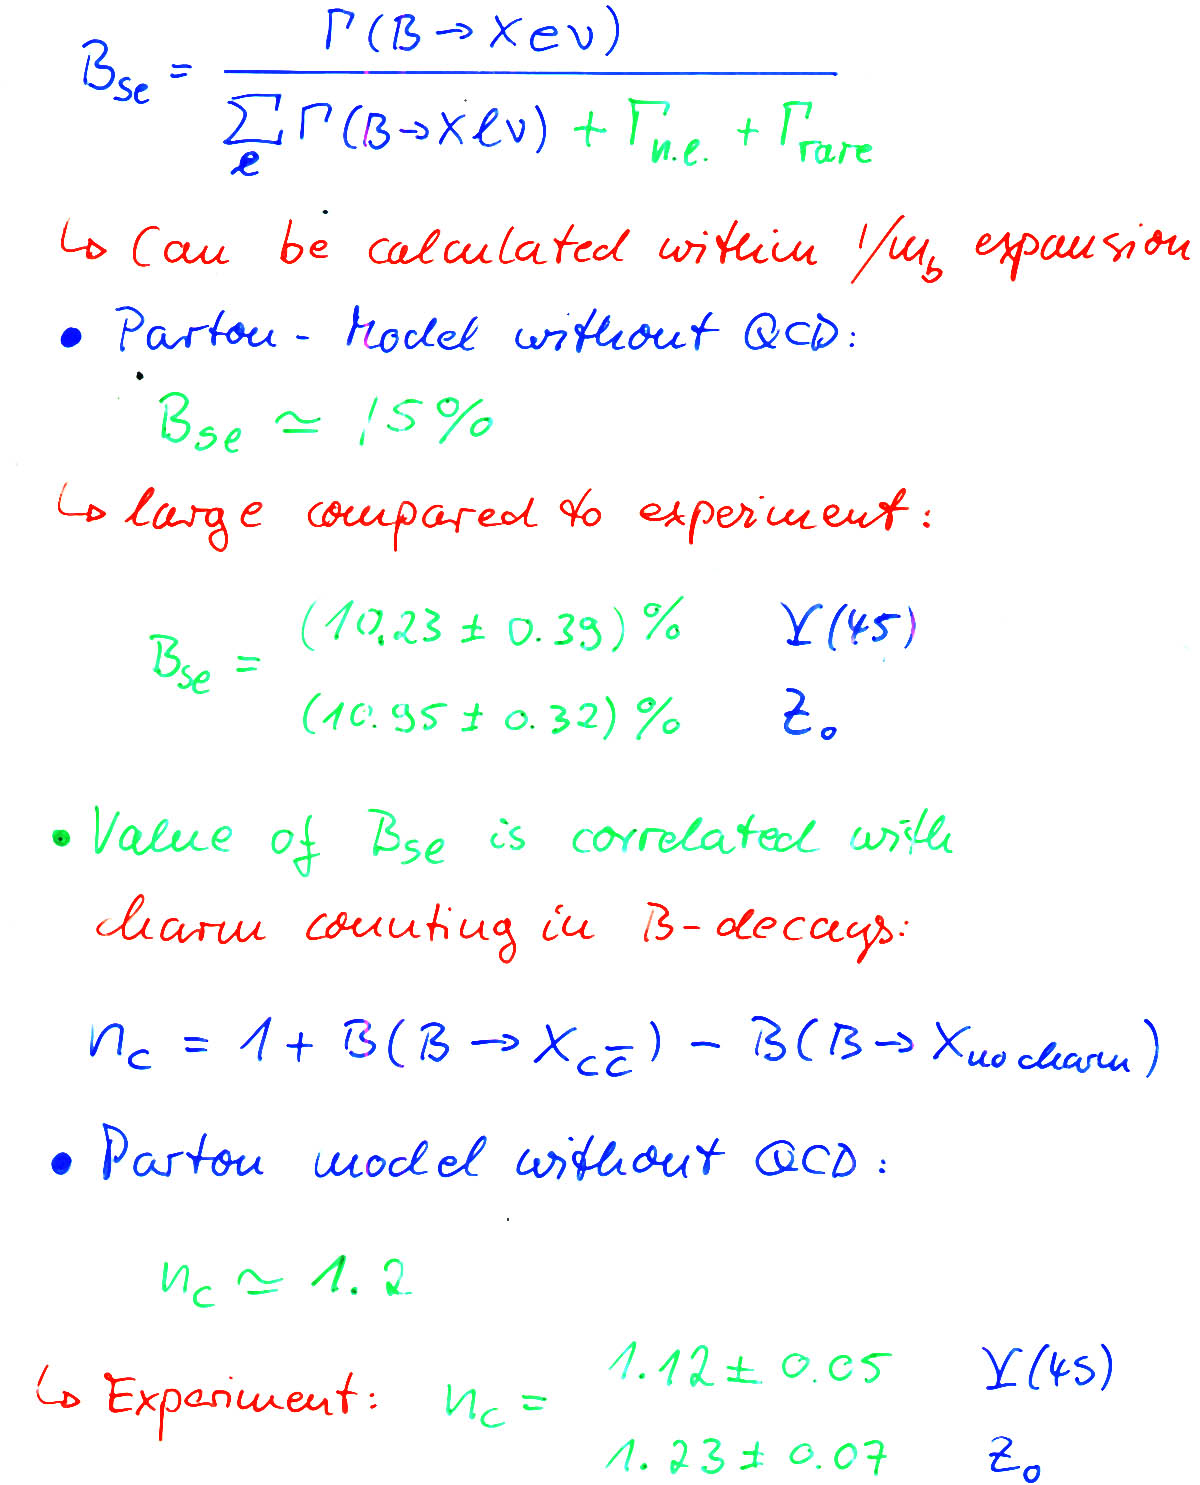 B_se = Γ(B → X e ν) / (∑_e Γ(B → X ℓ ν) + Γ_n.e. + Γ_rare)
↳ Can be calculated within 1/m_b expansion
• Parton - Model without QCD:
B_se ≃ 15%
↳ large compared to experiment:
B_se = (10.23 ± 0.39) % Υ(4S)
(10.95 ± 0.32) % Z_0
• Value of B_se is correlated with
charm counting in B-decays:
n_c = 1 + B(B → X_cc̄) - B(B → X_no charm)
• Parton model without QCD:
n_c ≃ 1.2
↳ Experiment: n_c = 1.12 ± 0.05 Υ(4S)
1.23 ± 0.07 Z_0